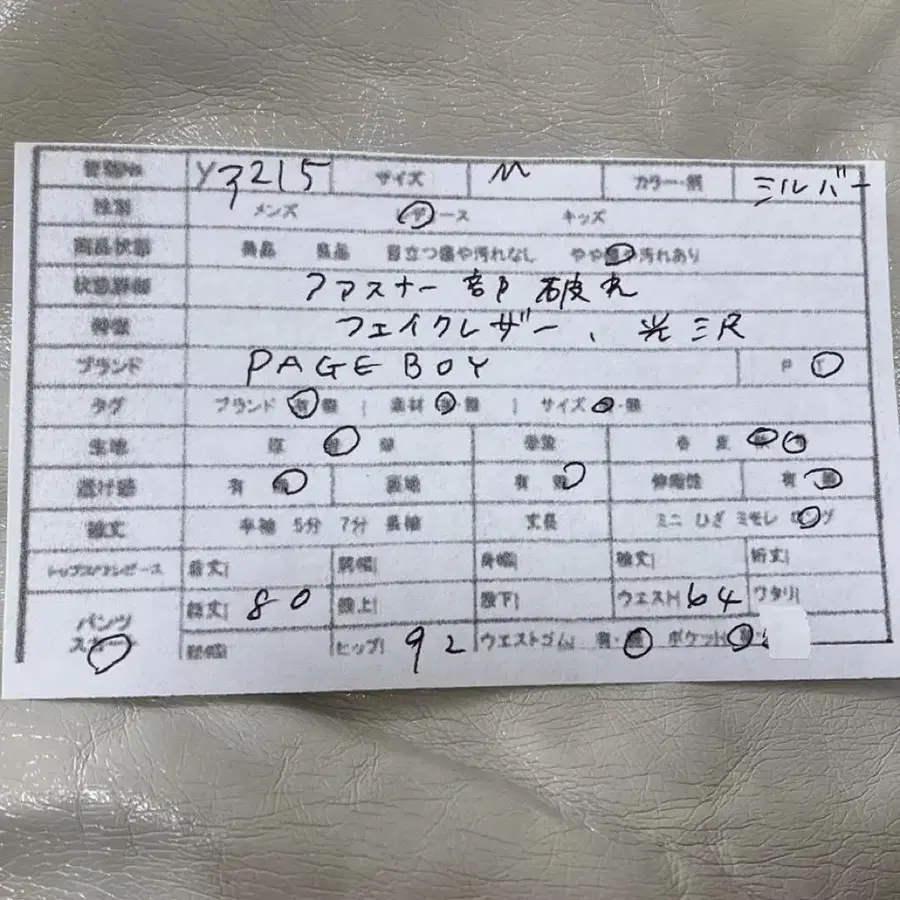 Y3215 サイズ M カラー・柄 シルバー
性別 メンズ ース キッズ
商品状態 美品 良品 目立つ傷や汚れなし やや 汚れあり
状態詳細 ファスナー部破れ
特徴 フェイクレザー、光沢
ブランド PAGE BOY P
タグ ブランド 無 | 素材 ・無 | サイズ ・無
生地 厚 薄 春 夏
透け感 有 裏地 有 伸縮性 有
袖丈 半袖 5分 7分 長袖 丈長 ミニ ひざ ミモレ
トップス/ワンピース 着丈| 肩幅| 身幅| 袖丈| 裄丈|
パンツ 総丈| 80 股上| 股下| ウエスト| 64 ワタリ|
裾幅| ヒップ| 92 ウエストゴム| 有・ ポケット|